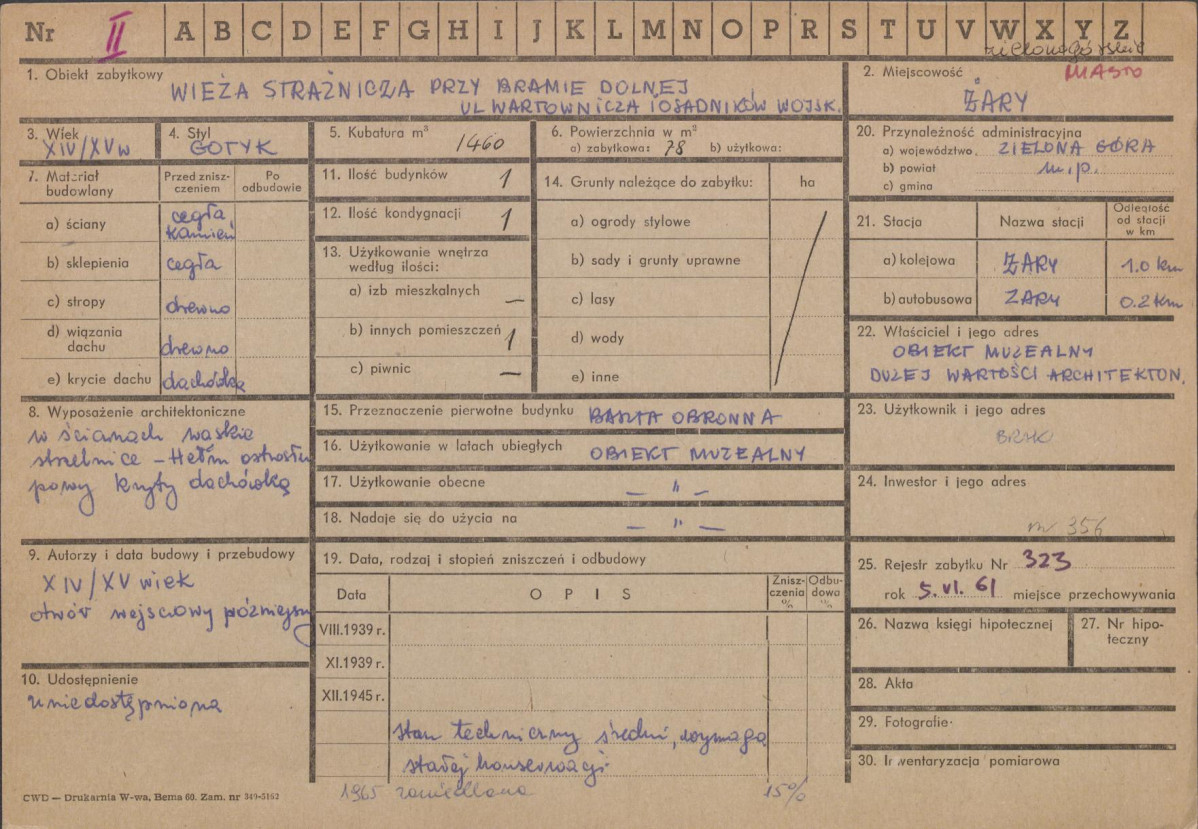 Nr II A B C D E F G H I J K L M N O P R S T U V W X Y Z
zielonogórskie
1. Obiekt zabytkowy
WIEŻA STRAŻNICZA PRZY BRAMIE DOLNEJ
UL WARTOWNICZA I OSADNIKÓW WOJSK.
2. Miejscowość
MIASTO
ŻARY
3. Wiek
XIV/XV w
4. Styl
GOTYK
5. Kubatura m³
1460
6. Powierzchnia w m²
a) zabytkowa: 78 b) użytkowa:
7. Materiał budowlany
Przed zniszczeniem
Po odbudowie
a) ściany
cegła
kamień
b) sklepienia cegła
c) stropy drewno
d) wiązania dachu
drewno
e) krycie dachu dachówka
8. Wyposażenie architektoniczne
w ścianach wąskie
strzelnice – Hełm ostrosłu
powy kryty dachówką
9. Autorzy i data budowy i przebudowy
XIV/XV wiek
otwór wejściowy późniejszy
10. Udostępnienie
nieudostępniona
11. Ilość budynków 1
12. Ilość kondygnacji 1
13. Użytkowanie wnętrza
według ilości:
a) izb mieszkalnych —
b) innych pomieszczeń 1
c) piwnic —
14. Grunty należące do zabytku: ha
a) ogrody stylowe
b) sady i grunty uprawne
c) lasy
d) wody
e) inne
15. Przeznaczenie pierwotne budynku BASZTA OBRONNA
16. Użytkowanie w latach ubiegłych OBIEKT MUZEALNY
17. Użytkowanie obecne — " —
18. Nadaje się do użycia na — " —
19. Data, rodzaj i stopień zniszczeń i odbudowy
Data
O P I S
Zniszczenia %
Odbudowa %
VIII.1939 r.
XI.1939 r.
XII.1945 r.
stan techniczny średni, wymaga
stałej konserwacji
1965 zaniedbana 15%
20. Przynależność administracyjna
a) województwo ZIELONA GÓRA
b) powiat m.p.
c) gmina
21. Stacja
Nazwa stacji
Odległość od stacji w km
a) kolejowa ŻARY 1.0 km
b) autobusowa ŻARY 0.2 km
22. Właściciel i jego adres
OBIEKT MUZEALNY
DUŻEJ WARTOŚCI ARCHITEKTON.
23. Użytkownik i jego adres
BRAK
24. Inwestor i jego adres
nr 356
25. Rejestr zabytku Nr 323
rok 5.VI.61 miejsce przechowywania
26. Nazwa księgi hipotecznej
27. Nr hipoteczny
28. Akta
29. Fotografie
30. Inwentaryzacja pomiarowa
CWD — Drukarnia W-wa, Bema 60. Zam. nr 349-5162